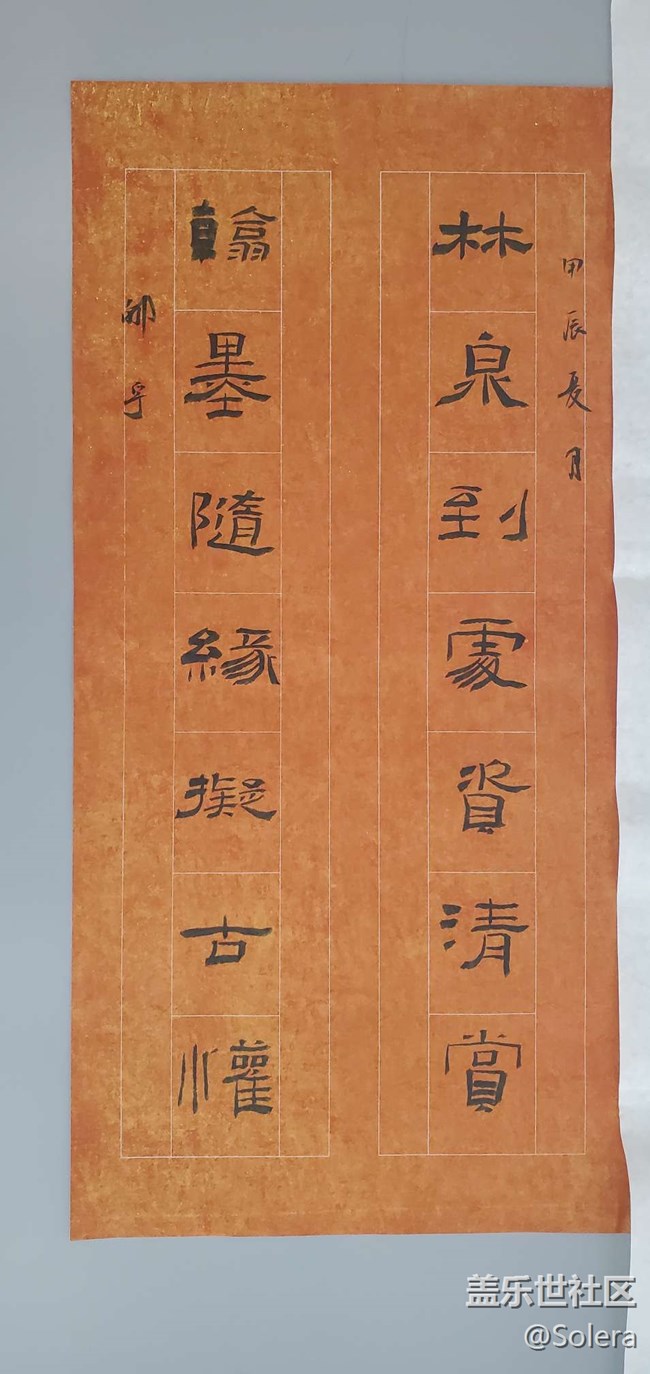 甲辰夏月
林泉到處資清賞
翰墨隨緣擬古懽
盖乐世社区
@Solera